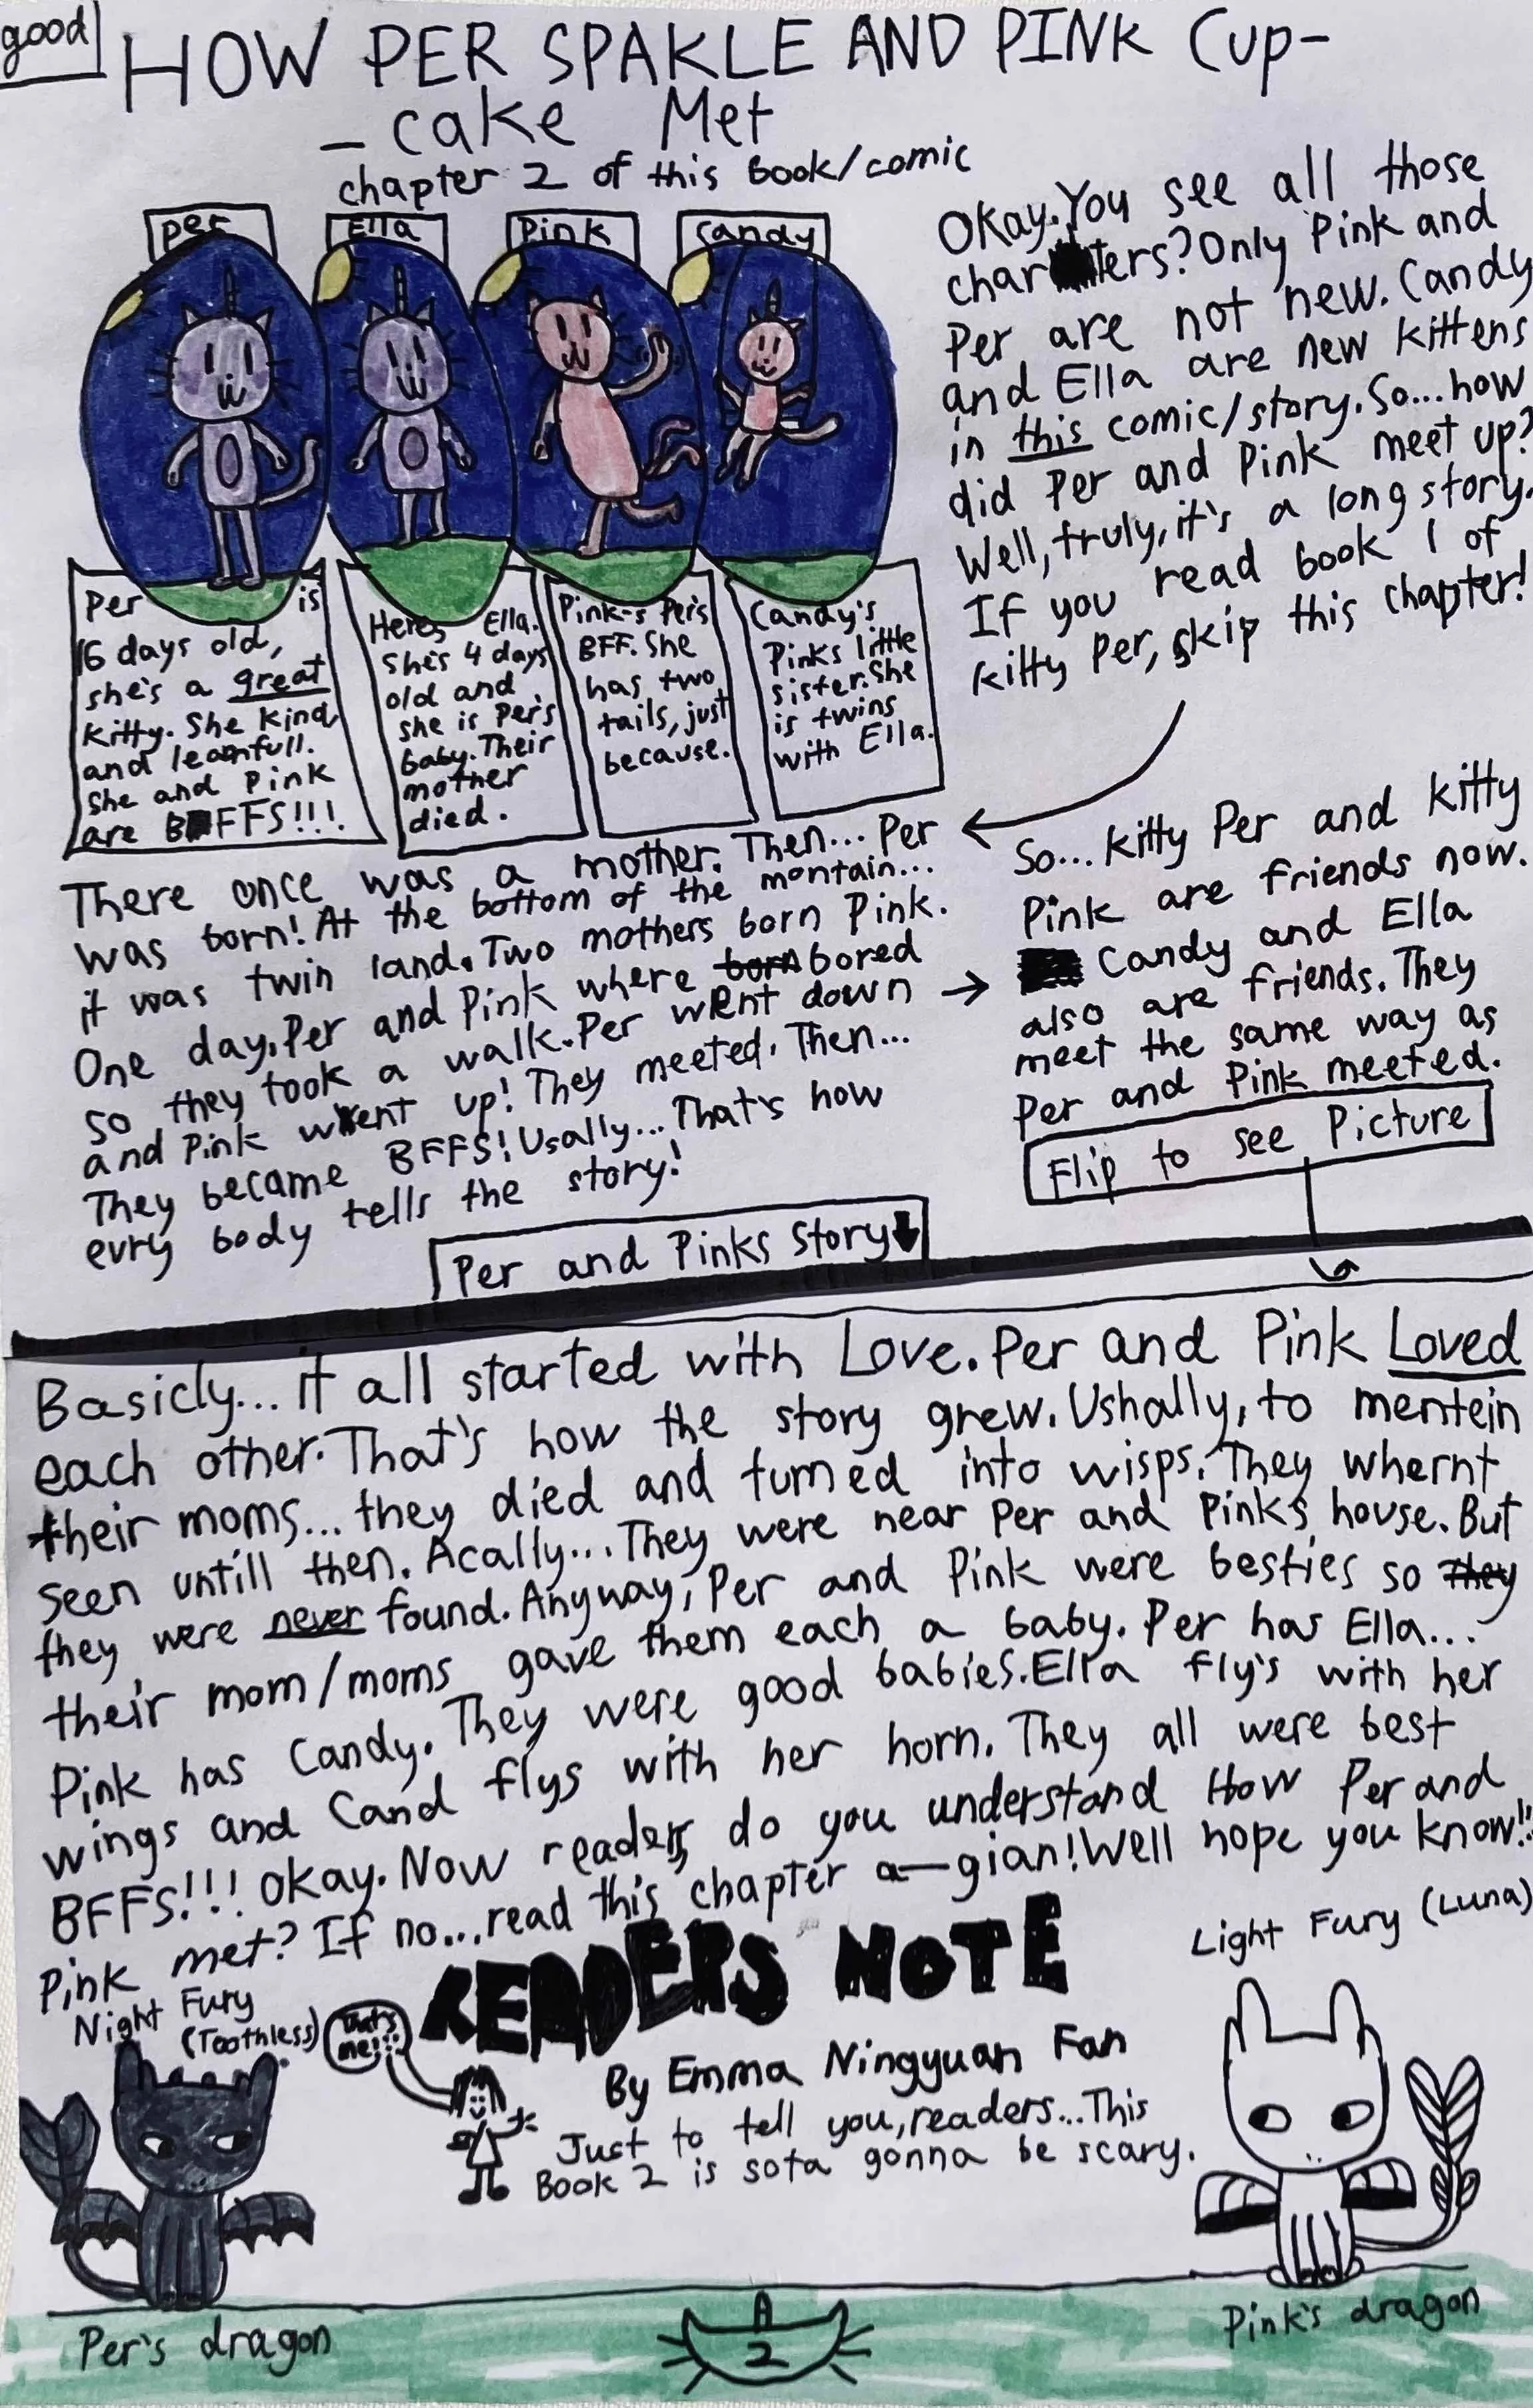 good
HOW PER SPAKLE AND PINK Cup-
- cake Met
chapter 2 of this book/comic
Per
Ella
Pink
Candy
Okay. You see all those
charters? Only Pink and
Per are not new. Candy
and Ella are new kittens
in this comic/story. So... how
did Per and Pink meet up?
Well, truly, it's a long story.
If you read book 1 of
Kitty Per, skip this chapter!
Per is
16 days old,
she's a great
Kitty. She kind
and learnfull.
She and Pink
are BFFS!!!
Heres Ella.
She's 4 days
old and
she is Per's
baby. Their
mother
died.
Pink-s Per's
BFF. She
has two
tails, just
because.
Candy's
Pinks little
sister. She
is twins
with Ella.
There once was a mother. Then... Per
was born! At the bottom of the montain...
it was twin land. Two mothers born Pink.
One day, Per and Pink where born bored
so they took a walk. Per went down
and Pink went up! They meeted. Then...
They became BFFS! Usally... That's how
evry body tells the story!
So... Kitty Per and Kitty
Pink are friends now.
Candy and Ella
also are friends. They
meet the same way as
Per and Pink meeted.
Flip to see Picture
Per and Pinks Story
Basicly... it all started with Love. Per and Pink Loved
each other. That's how the story grew. Ushally, to mentein
their moms... they died and turned into wisps. They whernt
seen untill then. Acally... They were near Per and Pink's house. But
they were never found. Anyway, Per and Pink were besties so they
their mom/moms gave them each a baby. Per has Ella...
Pink has Candy. They were good babies. Ella fly's with her
wings and Cand flys with her horn. They all were best
BFFS!!! Okay. Now readers, do you understand How Per and
Pink met? If no... read this chapter a-gian! Well hope you know!!
READERS NOTE
Night Fury
(Toothless)
that's
me!!
Light Fury (Luna)
By Emma Ningyuan Fan
Just to tell you, readers... This
Book 2 is sota gonna be scary.
Per's dragon
2
Pink's dragon